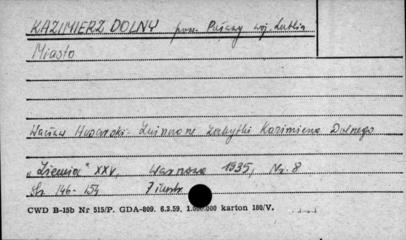 KAZIMIERZ DOLNY pow. Puławy woj. Lublin
Miasto
Wacław Husarski - Zabytki Kazimierza Dolnego
"Ziemia" XXV, Warszawa 1935, Nr. 8
Str. 146-154 7 ilustr.
CWD B-15b Nr 515/P. GDA-809. 6.3.59. 1.000.000 karton 180/V.